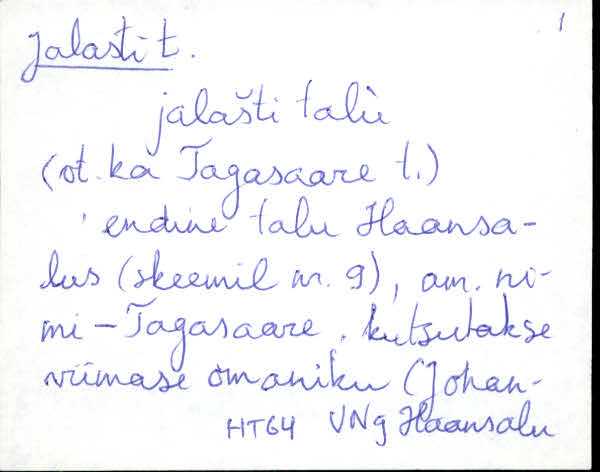 1
Jalasti t.
jalašti talù
(vt. ka Tagasaare t.)
endine talu Haansa-
lus (skeemil nr. 9), am. ni-
mi - Tagasaare. kutsutakse
viimase omaniku (Johan-
HT64 VNg Haansalu